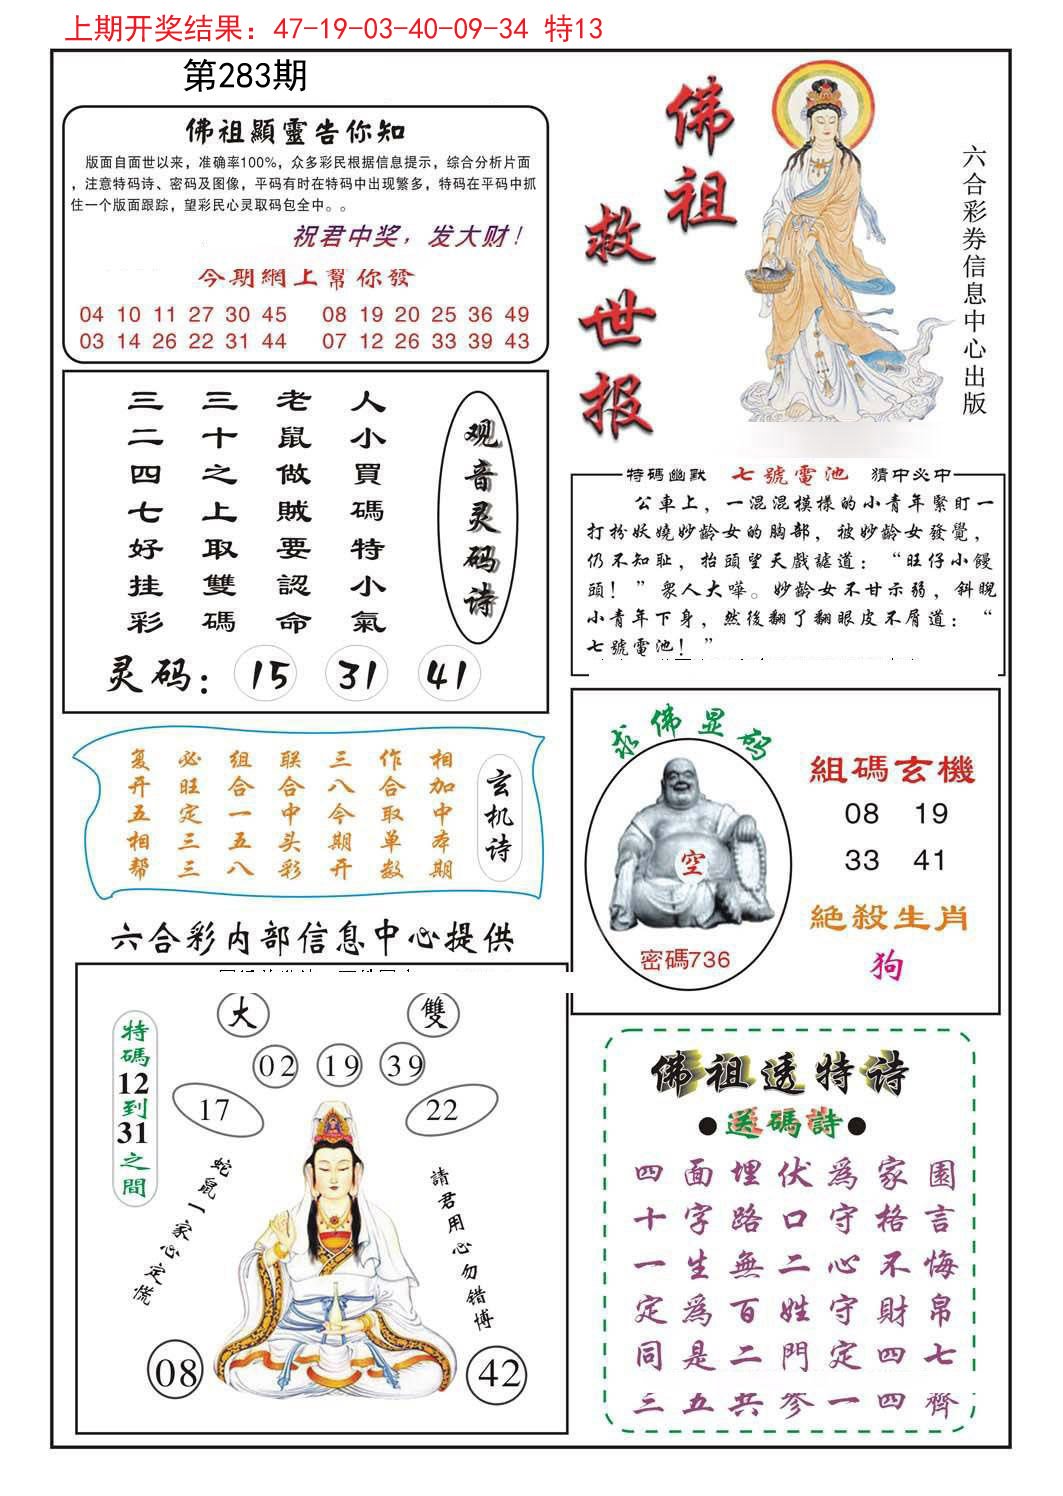 上期开奖结果：47-19-03-40-09-34 特13
第283期
佛祖顯靈告你知
版面自面世以来，准确率100%，众多彩民根据信息提示，综合分析片面
，注意特码诗、密码及图像，平码有时在特码中出现繁多，特码在平码中抓
住一个版面跟踪，望彩民心灵取码包全中。。
祝君中奖，发大财！
今期網上幫你發
04 10 11 27 30 45 08 19 20 25 36 49
03 14 26 22 31 44 07 12 26 33 39 43
佛祖
救世报
六合彩券信息中心出版
观音灵码诗
人小買碼特小氣
老鼠做賊要認命
三十之上取雙碼
三二四七好挂彩
灵码：15 31 41
特碼幽默 七號電池 猜中必中
公車上，一混混模樣的小青年緊盯一
打扮妖嬈妙齡女的胸部，被妙齡女發覺，
仍不知耻，抬頭望天戲謔道：“旺仔小饅
頭！”衆人大嘩。妙齡女不甘示弱，斜睨
小青年下身，然後翻了翻眼皮不屑道：“
七號電池！”
玄机诗
相加中本期
作合取单数
三八今期开
联合中头彩
组合一五八
必旺定三三
复开五相帮
求佛显码
空
密碼736
組碼玄機
08 19
33 41
絕殺生肖
狗
六合彩内部信息中心提供
大 雙
02 19 39
17 22
特碼12到31之間
蛇鼠一家心定慌
請君用心勿错博
08 42
佛祖透特诗
●送碼詩●
四面埋伏爲家園
十字路口守格言
一生無二心不悔
定爲百姓守財帛
同是二門定四七
三五共參一四齊